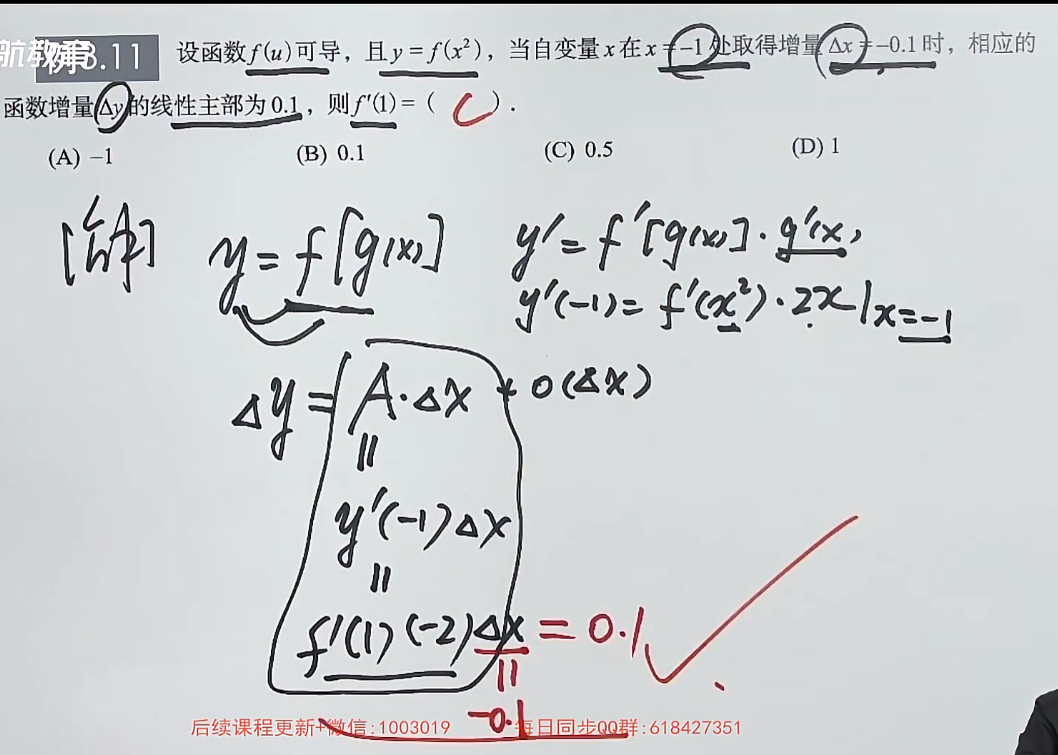 航教育
例3.11 设函数 f(u) 可导，且 y = f(x²)，当自变量 x 在 x = −1 处取得增量 Δx = −0.1 时，相应的
函数增量 Δy 的线性主部为 0.1，则 f′(1) = ( C ).
(A) −1 (B) 0.1 (C) 0.5 (D) 1
[解] y = f[g(x)] y′ = f′[g(x)]·g′(x)
y′(−1) = f′(x²)·2x|x=−1
Δy = A·Δx + o(Δx)
=
y′(−1)Δx
=
f′(1)(−2)Δx = 0.1
=
−0.1
后续课程更新+微信:1003019 每日同步QQ群:618427351